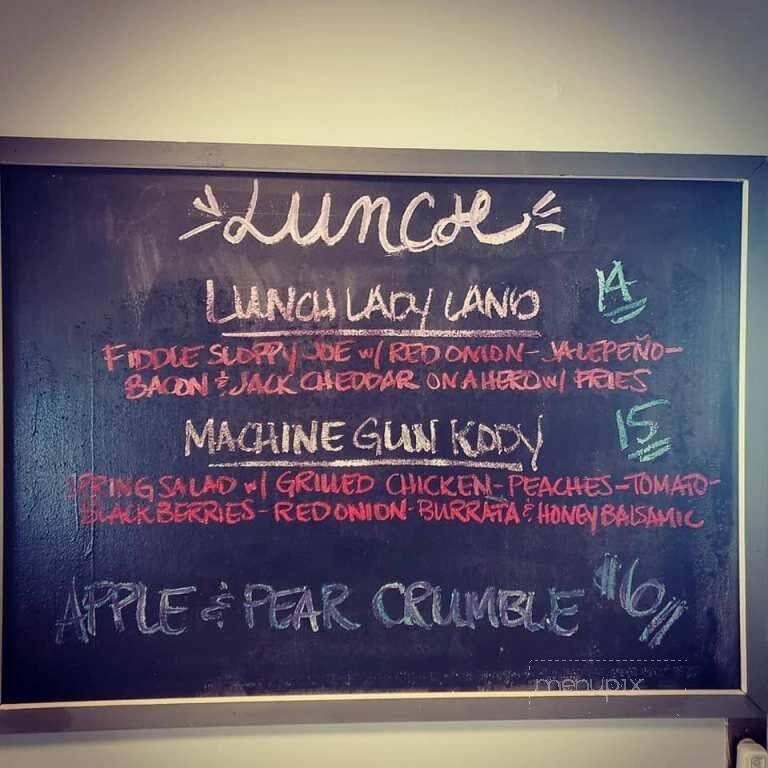 LUNCH
LUNCH LADY LAND 14
FIDDLE SLOPPY JOE w/ RED ONION - JALEPEÑO -
BACON & JACK CHEDDAR ON A HERO w/ FRIES
MACHINE GUN KODY 15
SPRING SALAD w/ GRILLED CHICKEN - PEACHES - TOMATO -
BLACKBERRIES - RED ONION - BURRATA & HONEY BALSAMIC
APPLE & PEAR CRUMBLE $6
menupix